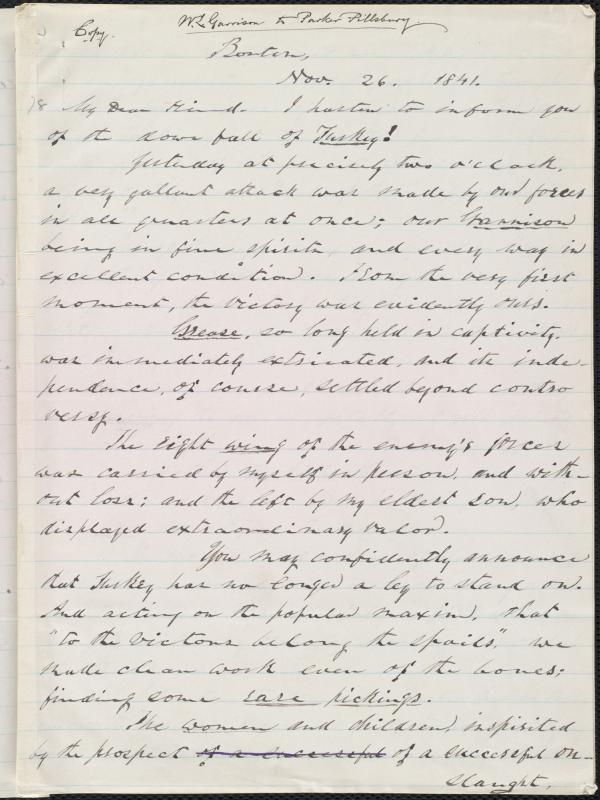 W. L. Garrison to Parker Pillsbury
Copy.
Boston,
Nov. 26. 1841.
My Dear Friend. I hasten to inform you
of the down fall of Turkey!
Yesterday at precisely two o'clock,
a very gallant attack was made by our forces
in all quarters at once; our Garrison
being in fine spirits, and every way in
excellent condition. From the very first
moment, the victory was evidently ours.
Grease, so long held in captivity,
was immediately extricated, and its inde-
pendence, of course, settled beyond contro
versy.
The right wing of the enemy's forces
was carried by myself in person, and with-
out loss; and the left by my eldest son, who
displayed extraordinary valor.
You may confidently announce
that Turkey has no longer a leg to stand on.
And acting on the popular maxim, that
"to the victors belong the spoils," we
made clean work even of the bones;
finding some rare pickings.
The women and children, inspirited
by the prospect of a successful of a successful on-
slaught,